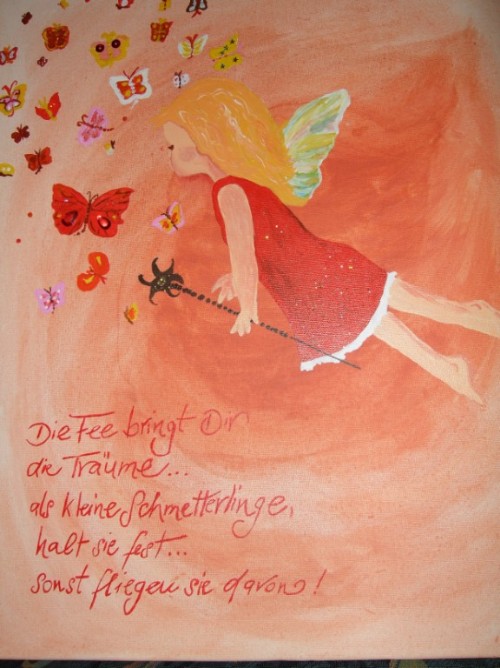 Die Fee bringt Dir
die Träume...
als kleine Schmetterlinge,
halt sie fest...
sonst fliegen sie davon!